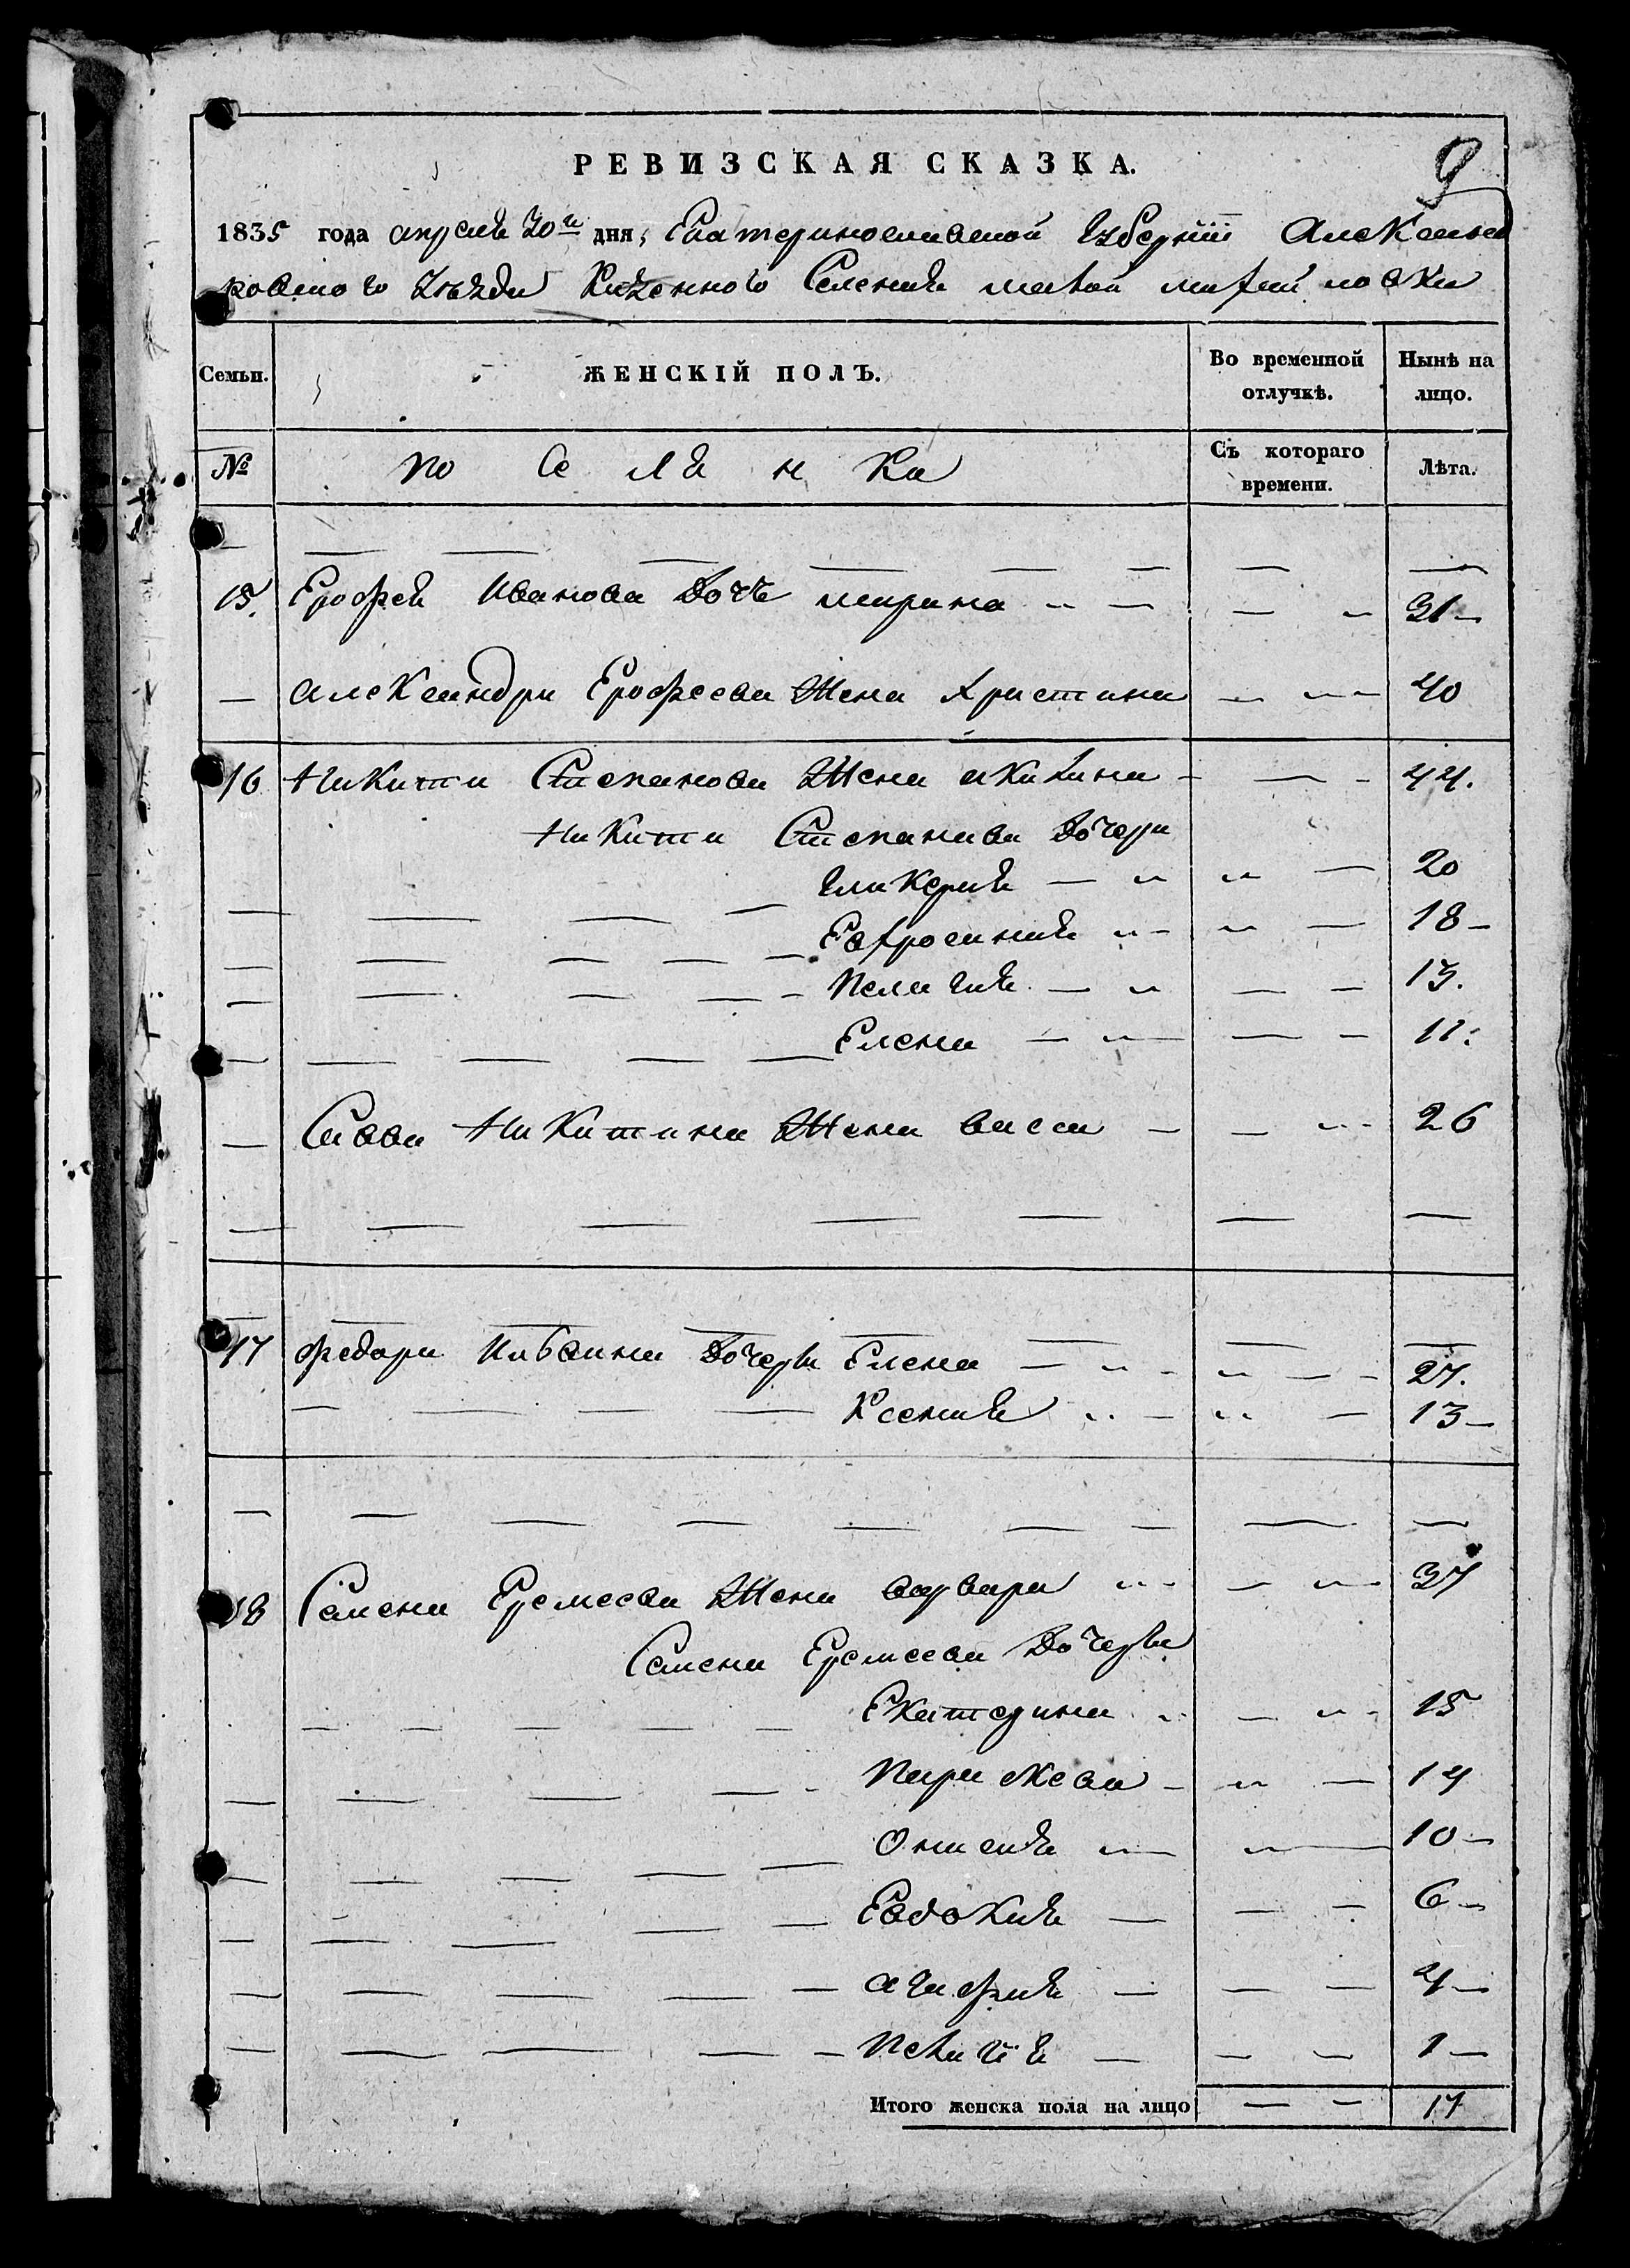 9
РЕВИЗСКАЯ СКАЗКА.
1835 года апреля 30го дня, Екатеринославской Губернии Александ
ровского Уезда Казенного Селения малой михайловки
Семьи. ЖЕНСКІЙ ПОЛЪ. Во временной отлучкѣ. Нынѣ на лицо.
№ по се ля н ка Съ котораго времени. Лѣта.
15. Ерофея Иванова Дочь марина 31
Александра Ерофеева Жена христина 40
16 Никиты Степанова Жена акилина 44.
Никиты Степанова Дочери
гликерия 20
Евфросиния 18
Пелагия 13.
Елена 11:
Савы Никитина Жена васса 26
17 Федора Дочери Елена 27.
Ксения 13
18 Семена Еремеева Жена варвара 37
Семена Еремеева Дочери
Екатерина 15
Параскева 14
Онисия 10
Евдокия 6
агафия 4
Пелагия 1
Итого женска пола на лицо 17